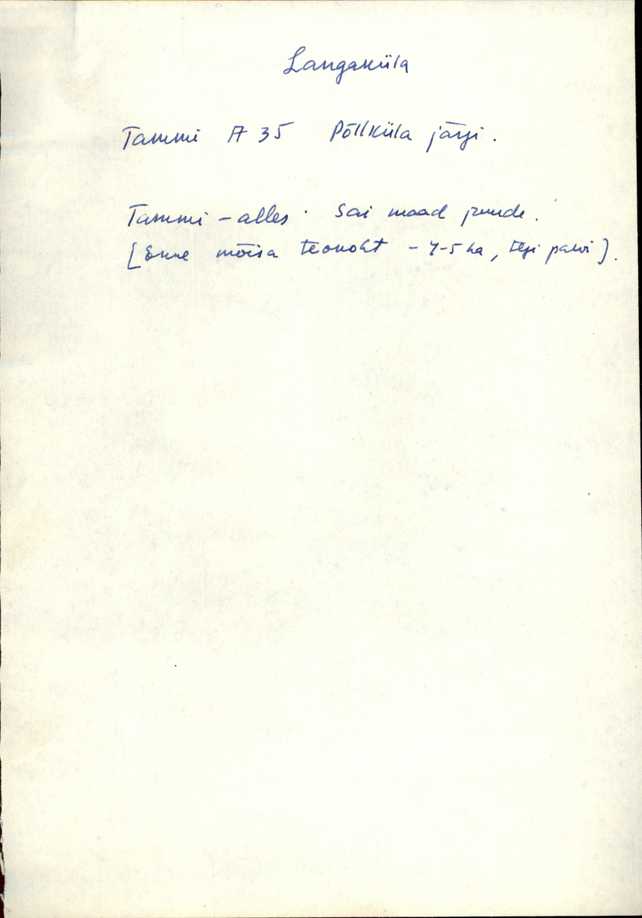 Langaküla
Tammi A 35 Põllküla järgi.
Tammi – alles. Sai maad juurde.
[Enne mõisa teokoht – 4-5 ha, tegi päevi].